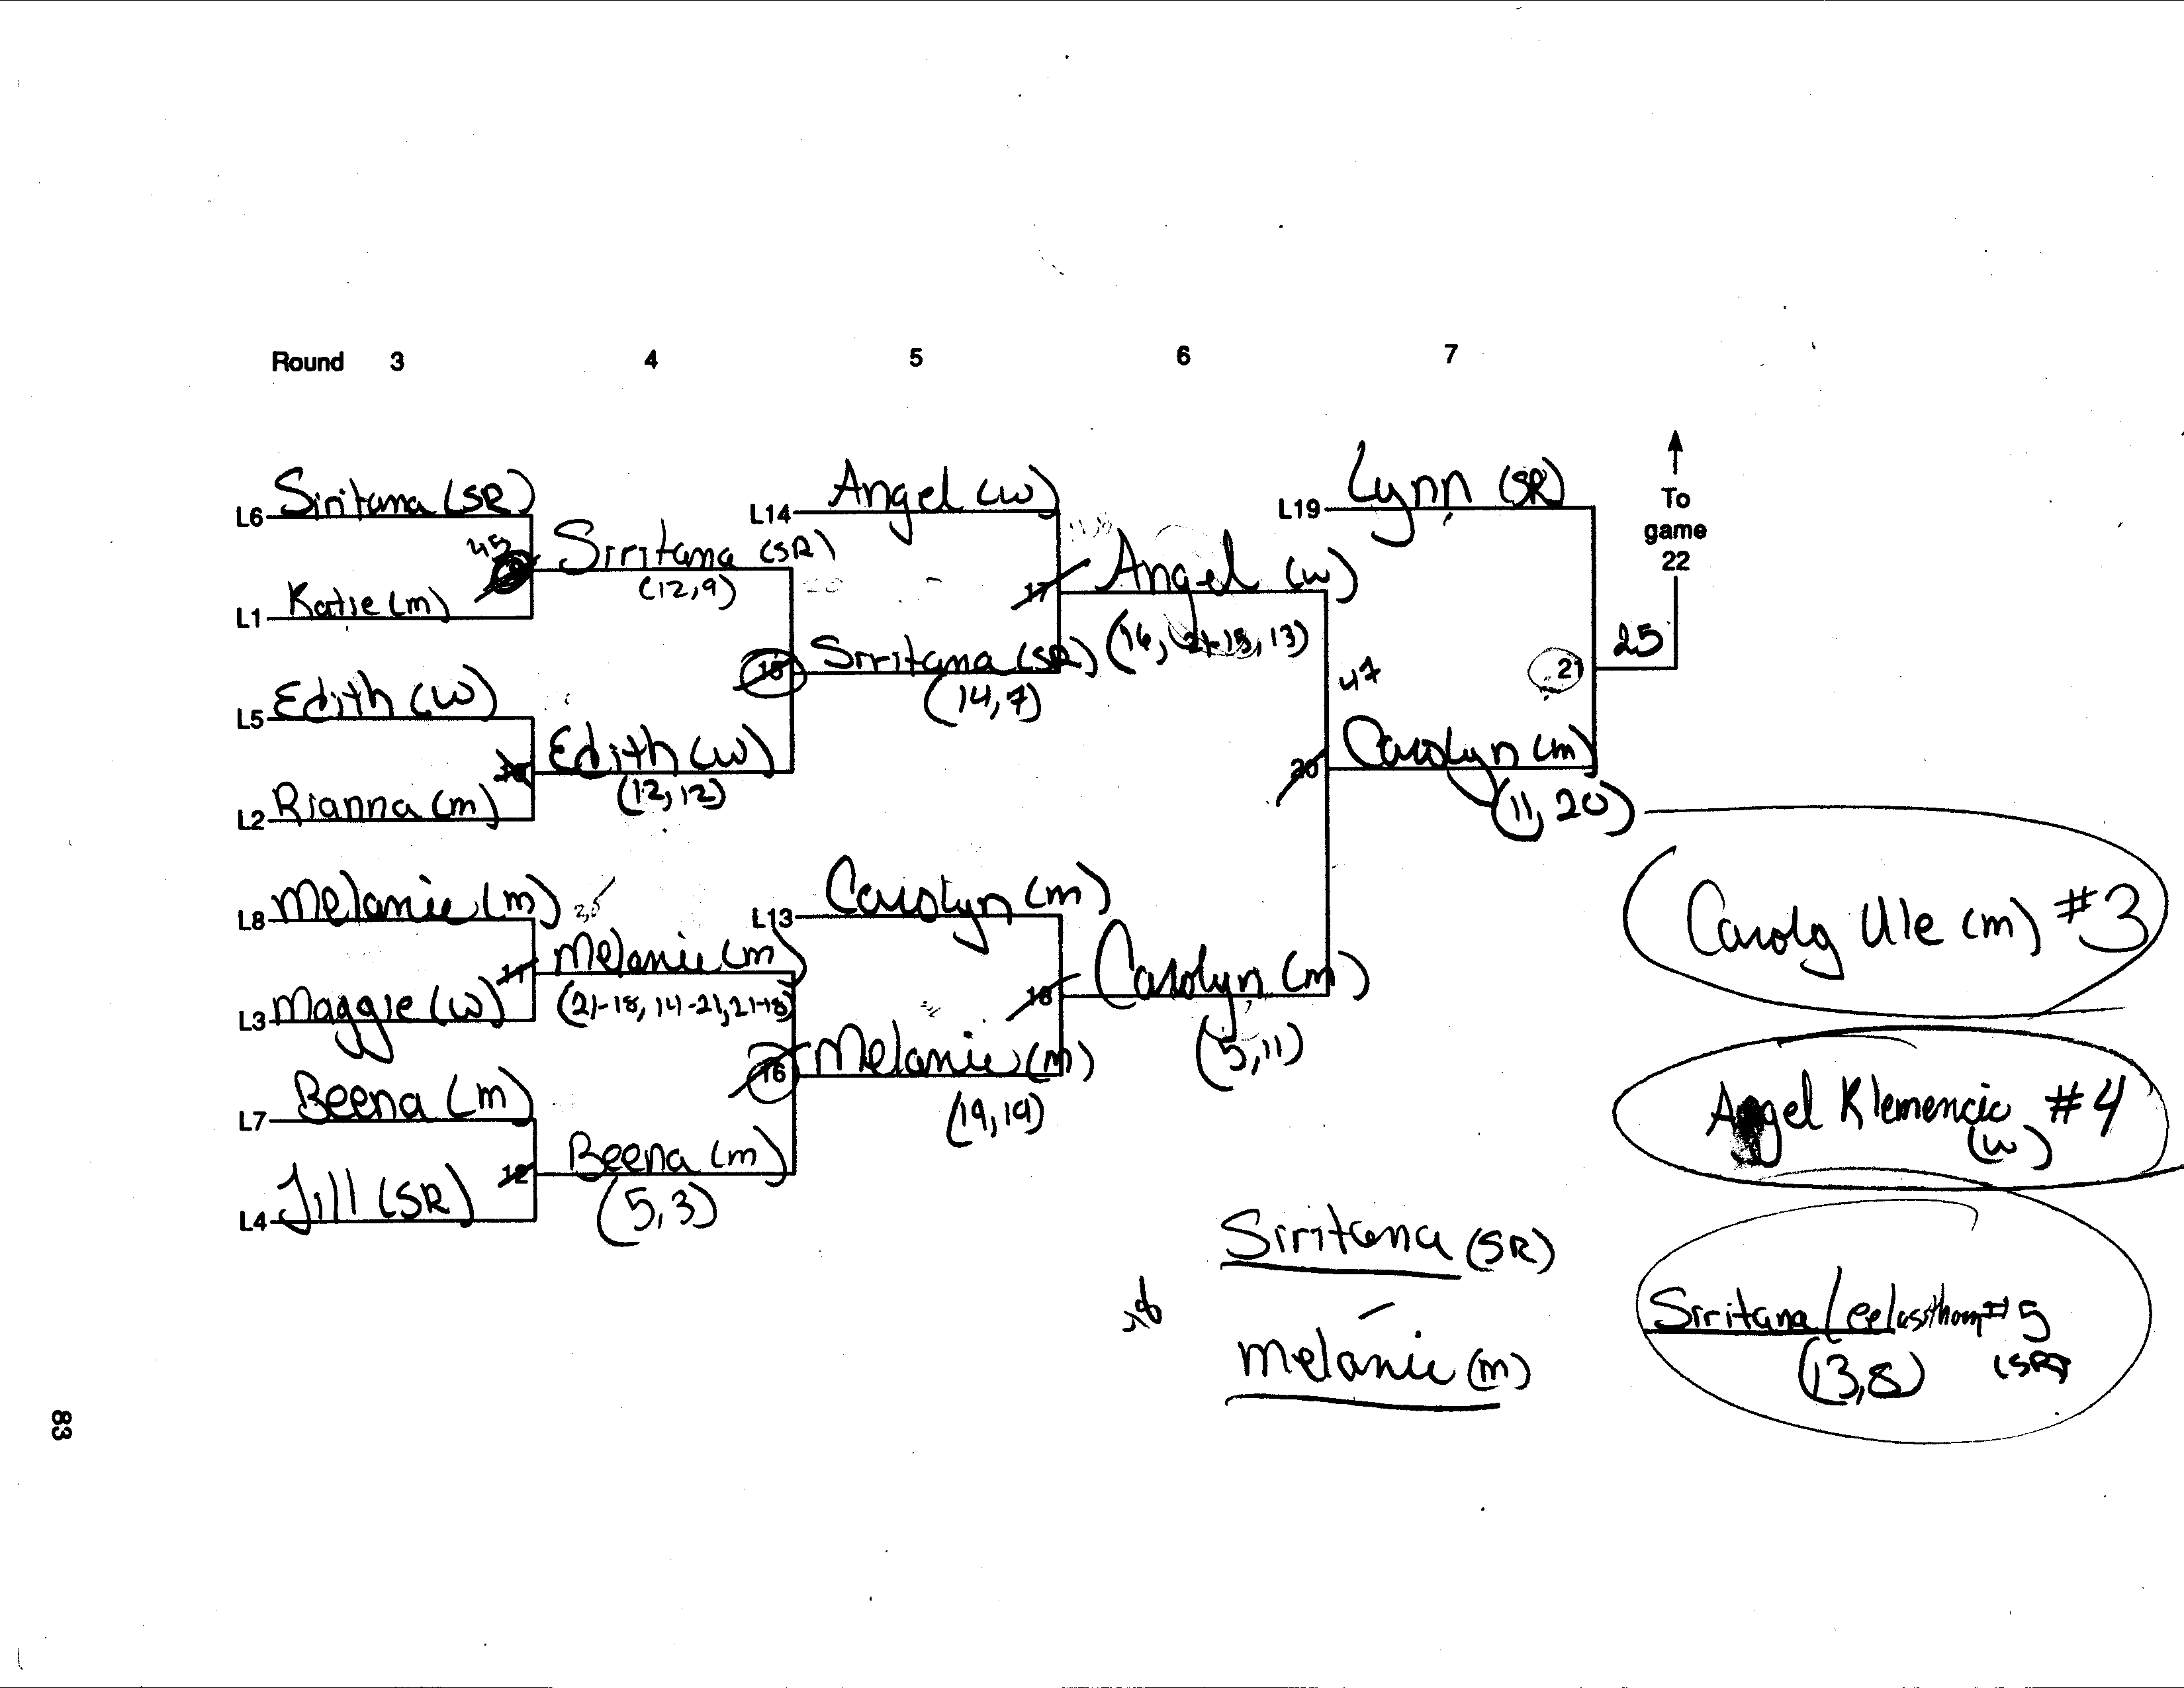 Round 3 4 5 6 7
L6 Siritana (SR)
45
Siritana (SR)
(12,9)
L1 Katie (m)
L5 Edith (w)
10
Edith (w)
(12,12)
L2 Rianna (m)
L8 Melanie (m)
11
Melanie (m)
(21-18, 14-21, 21-18)
L3 Maggie (w)
L7 Beena (m)
12
Beena (m)
(5,3)
L4 Jill (SR)
L14 Angel (w)
15
Siritana (SR)
(14,7)
17
Angel (w)
L13 Carolyn (m)
16
Melanie (m)
(19,19)
18
Carolyn (m)
(5,11)
L19 Lynn (SR)
47
20
Carolyn (m)
(11, 20)
21
25
To
game
22
Carolyn Ule (m) #3
Angel Klemencic #4
(w)
Siritana (SR)
-
Melanie (m)
Siritana #5
(13,8) (SR)
83